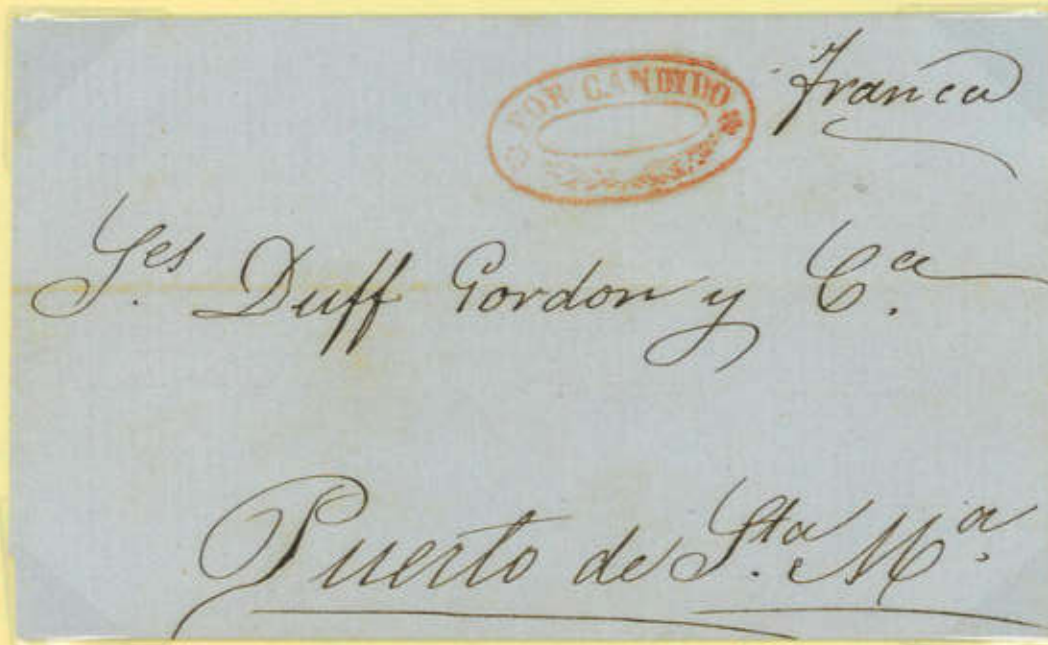 POR CANDIDO
Franca
Sres Duff Gordon y Ca.
Puerto de Sta. Ma.